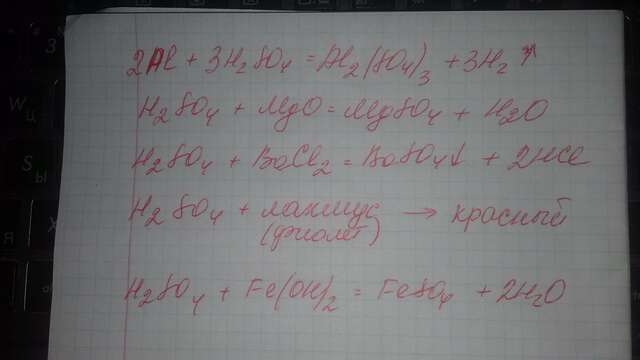 2Al + 3H₂SO₄ = Al₂(SO₄)₃ + 3H₂↑
H₂SO₄ + MgO = MgSO₄ + H₂O
H₂SO₄ + BaCl₂ = BaSO₄↓ + 2HCl
H₂SO₄ + лакмус → красный
(фиолет)
H₂SO₄ + Fe(OH)₂ = FeSO₄ + 2H₂O